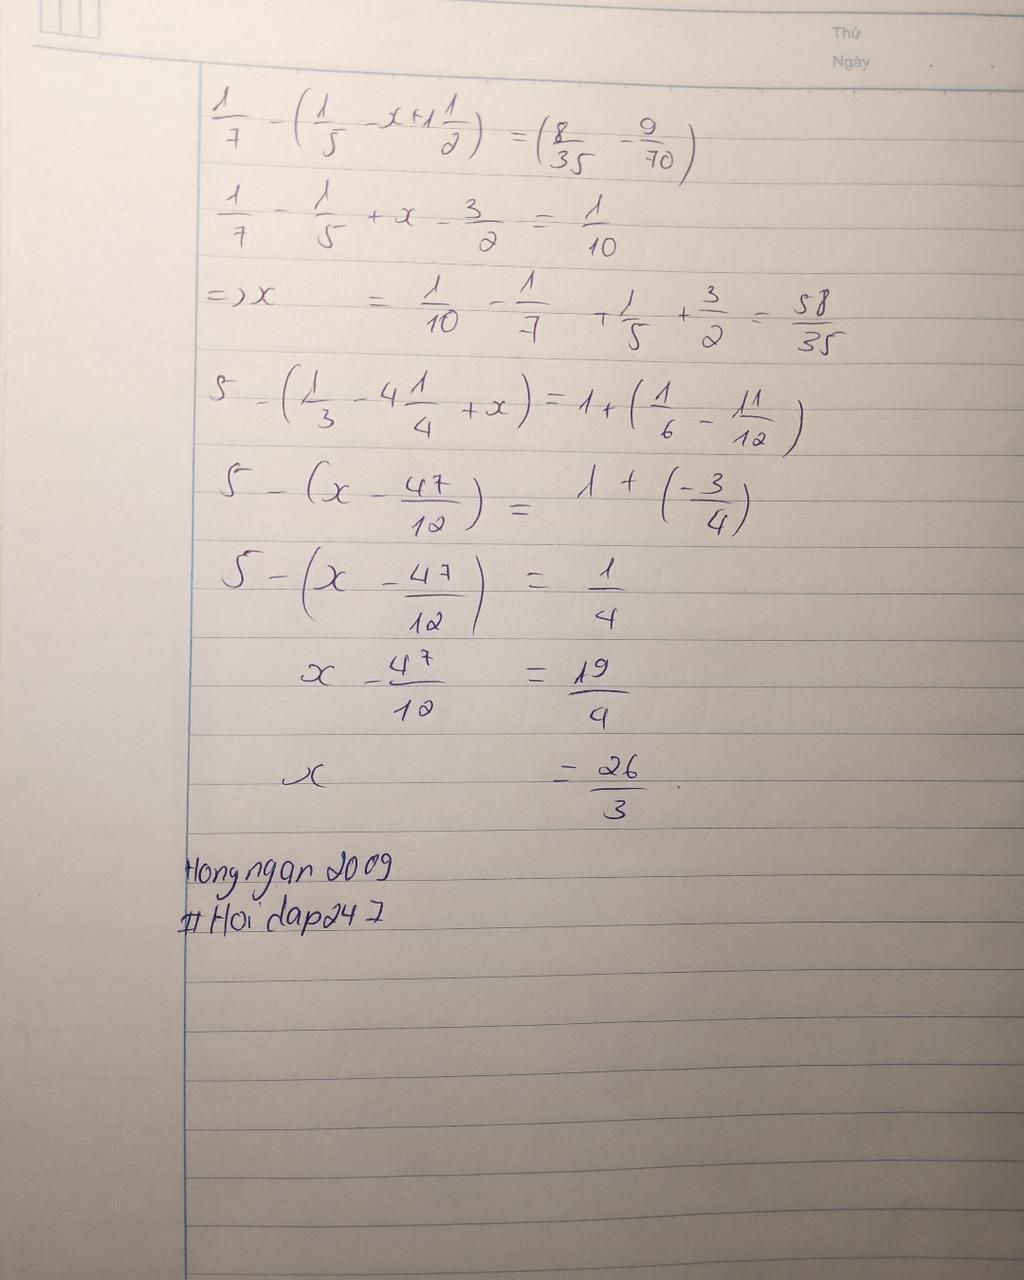 Thứ
Ngày
1/7 - (1/5 - x + 1 1/2) = (8/35 - 9/70)
1/7 - 1/5 + x - 3/2 = 1/10
=> x = 1/10 - 1/7 + 1/5 + 3/2 = 58/35
5 - (1/3 - 4 1/4 + x) = 1 + (1/6 - 11/12)
5 - (x - 47/12) = 1 + (-3/4)
5 - (x - 47/12) = 1/4
x - 47/12 = 19/4
x = 26/3
Hongngan 2009
#Hoidap247